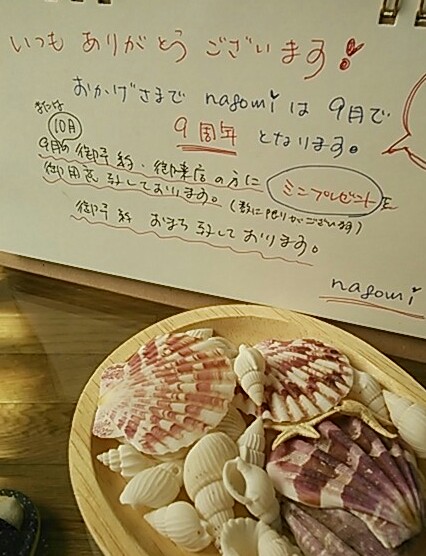 いつも ありがとう ございます！
おかげさまで nagomi は 9月で
9周年 となります。
または
10月
9月の 御予約・御来店の方に ミニプレゼントを
御用意 致しております。(数に限りがございます)
御予約 おまち致しております。
nagomi